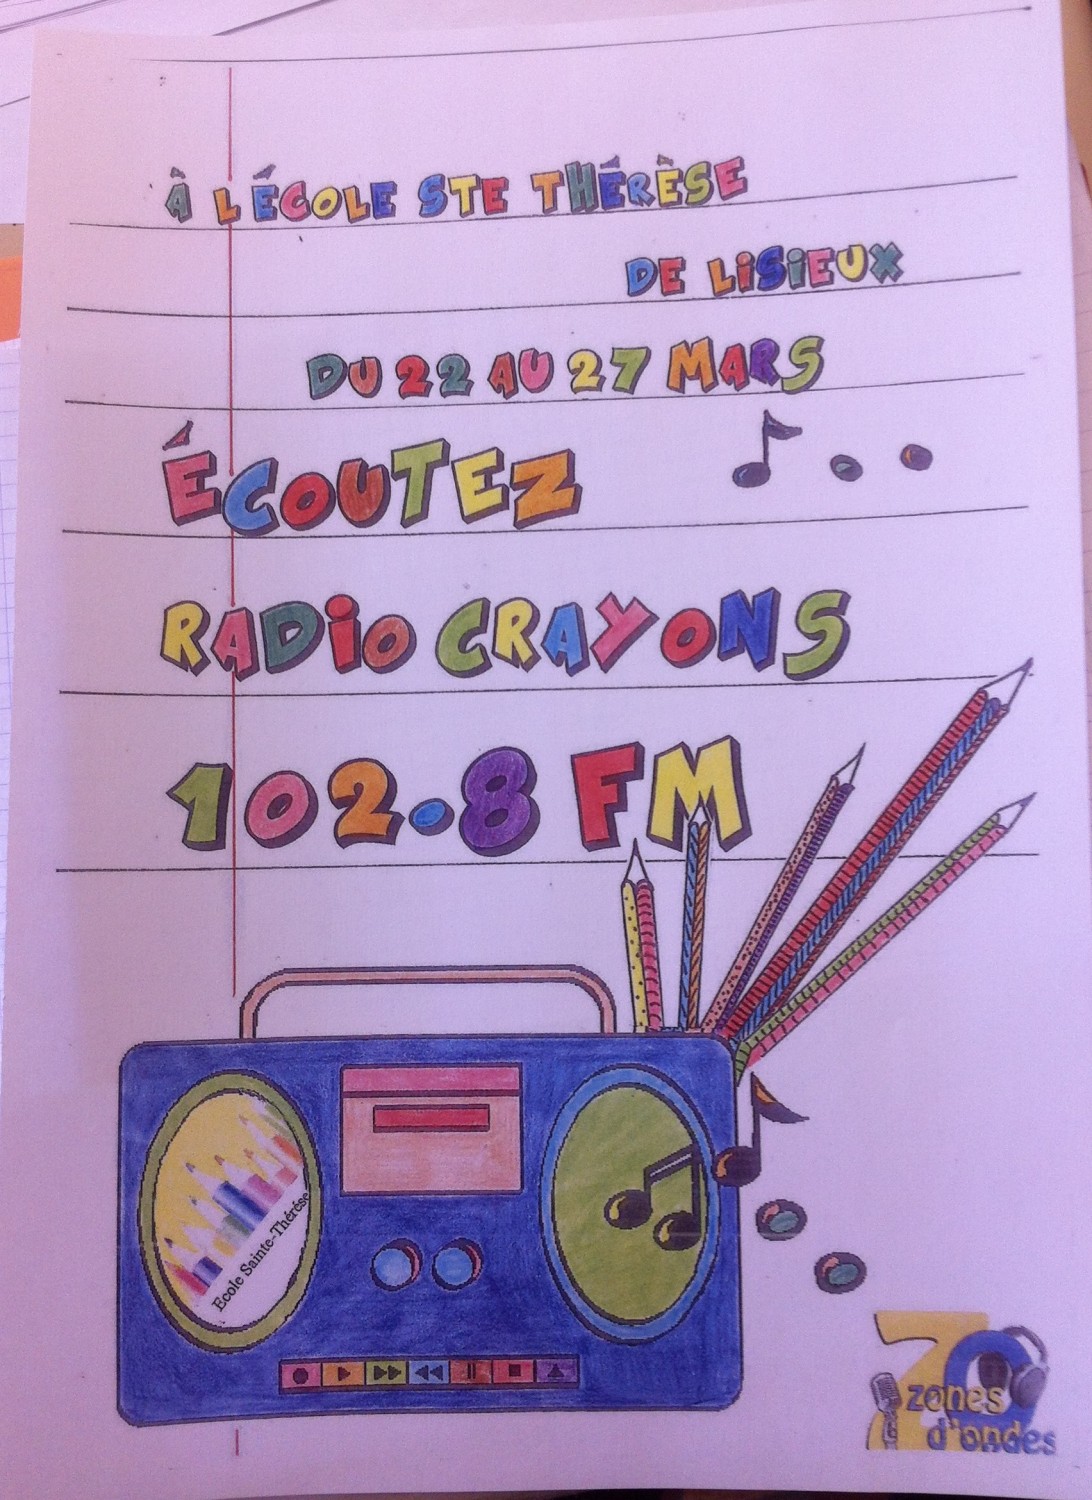 À L'ÉCOLE STE THÉRÈSE
DE LISIEUX
DU 22 AU 27 MARS
ÉCOUTEZ
RADIO CRAYONS
102.8 FM
Ecole Sainte-Thérèse
ZO
zones
d'ondes